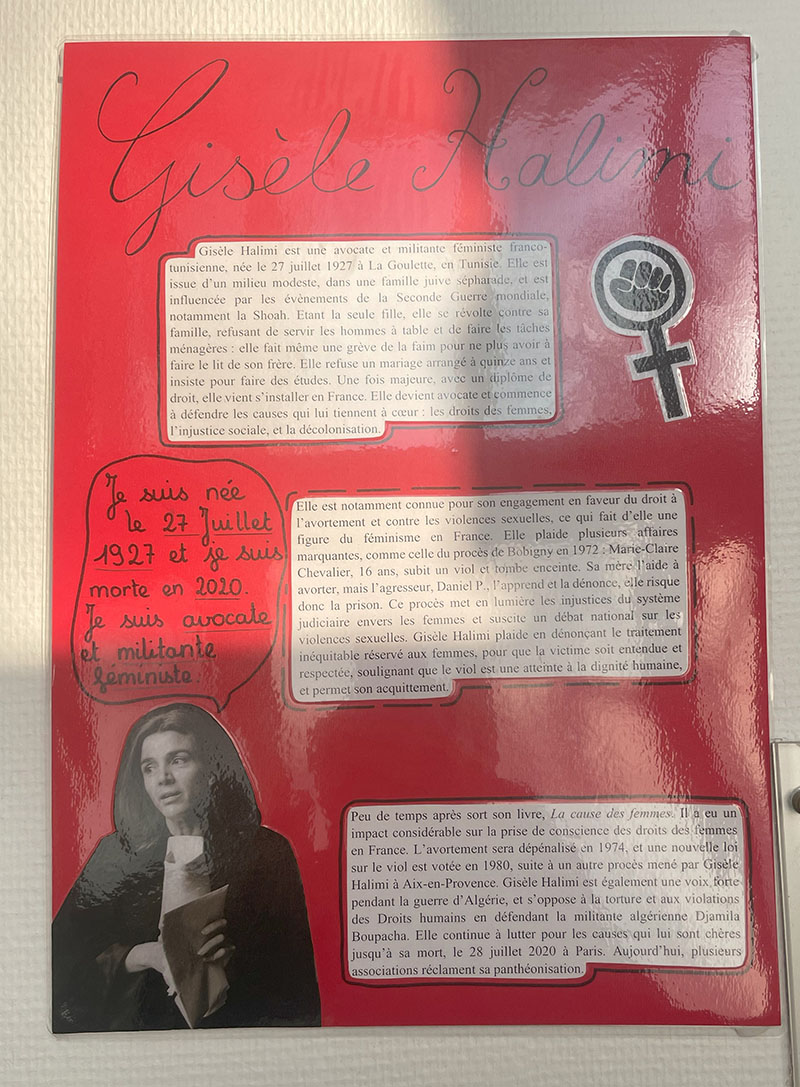 Gisèle Halimi
Gisèle Halimi est une avocate et militante féministe franco-
tunisienne, née le 27 juillet 1927 à La Goulette, en Tunisie. Elle est
issue d'un milieu modeste, dans une famille juive sépharade, et est
influencée par les évènements de la Seconde Guerre mondiale,
notamment la Shoah. Etant la seule fille, elle se révolte contre sa
famille, refusant de servir les hommes à table et de faire les tâches
ménagères : elle fait même une grève de la faim pour ne plus avoir à
faire le lit de son frère. Elle refuse un mariage arrangé à quinze ans et
insiste pour faire des études. Une fois majeure, avec un diplôme de
droit, elle vient s'installer en France. Elle devient avocate et commence
à défendre les causes qui lui tiennent à cœur : les droits des femmes,
l'injustice sociale, et la décolonisation.
Je suis née
le 27 Juillet
1927 et je suis
morte en 2020.
Je suis avocate
et militante
féministe.
Elle est notamment connue pour son engagement en faveur du droit à
l'avortement et contre les violences sexuelles, ce qui fait d'elle une
figure du féminisme en France. Elle plaide plusieurs affaires
marquantes, comme celle du procès de Bobigny en 1972 : Marie-Claire
Chevalier, 16 ans, subit un viol et tombe enceinte. Sa mère l'aide à
avorter, mais l'agresseur, Daniel P., l'apprend et la dénonce, elle risque
donc la prison. Ce procès met en lumière les injustices du système
judiciaire envers les femmes et suscite un débat national sur les
violences sexuelles. Gisèle Halimi plaide en dénonçant le traitement
inéquitable réservé aux femmes, pour que la victime soit entendue et
respectée, soulignant que le viol est une atteinte à la dignité humaine,
et permet son acquittement.
Peu de temps après sort son livre, La cause des femmes. Il a eu un
impact considérable sur la prise de conscience des droits des femmes
en France. L'avortement sera dépénalisé en 1974, et une nouvelle loi
sur le viol est votée en 1980, suite à un autre procès mené par Gisèle
Halimi à Aix-en-Provence. Gisèle Halimi est également une voix forte
pendant la guerre d'Algérie, et s'oppose à la torture et aux violations
des Droits humains en défendant la militante algérienne Djamila
Boupacha. Elle continue à lutter pour les causes qui lui sont chères
jusqu'à sa mort, le 28 juillet 2020 à Paris. Aujourd'hui, plusieurs
associations réclament sa panthéonisation.